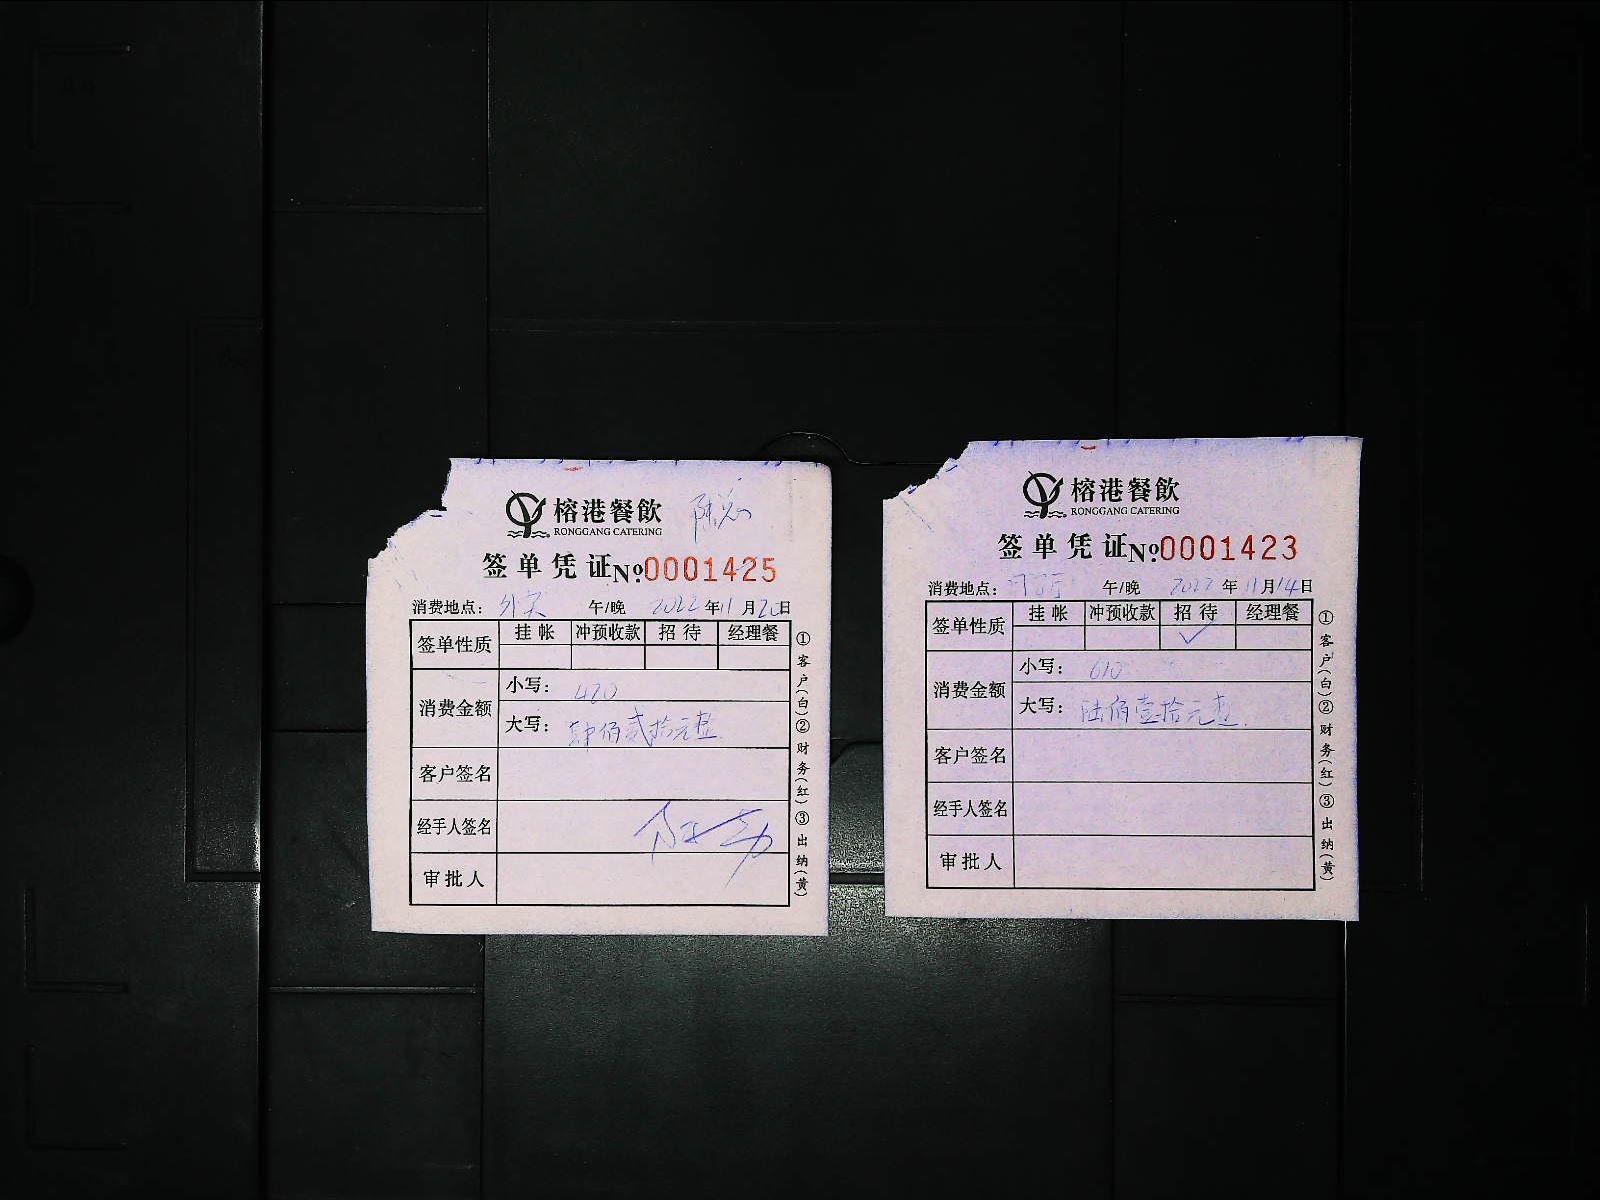 榕港餐飲 陈总
RONGGANG CATERING
签单凭证 №0001425
消费地点： 午/晚 2022年11月20日
签单性质 挂帐 冲预收款 招待 经理餐
消费金额 小写： 420
大写： 肆佰贰拾元整
客户签名
经手人签名
审批人
①客户(白)②财务(红)③出纳(黄)
榕港餐飲
RONGGANG CATERING
签单凭证 №0001423
消费地点： 午/晚 2022年11月14日
签单性质 挂帐 冲预收款 招待 经理餐
✓
消费金额 小写： 610
大写： 陆佰壹拾元整
客户签名
经手人签名
审批人
①客户(白)②财务(红)③出纳(黄)